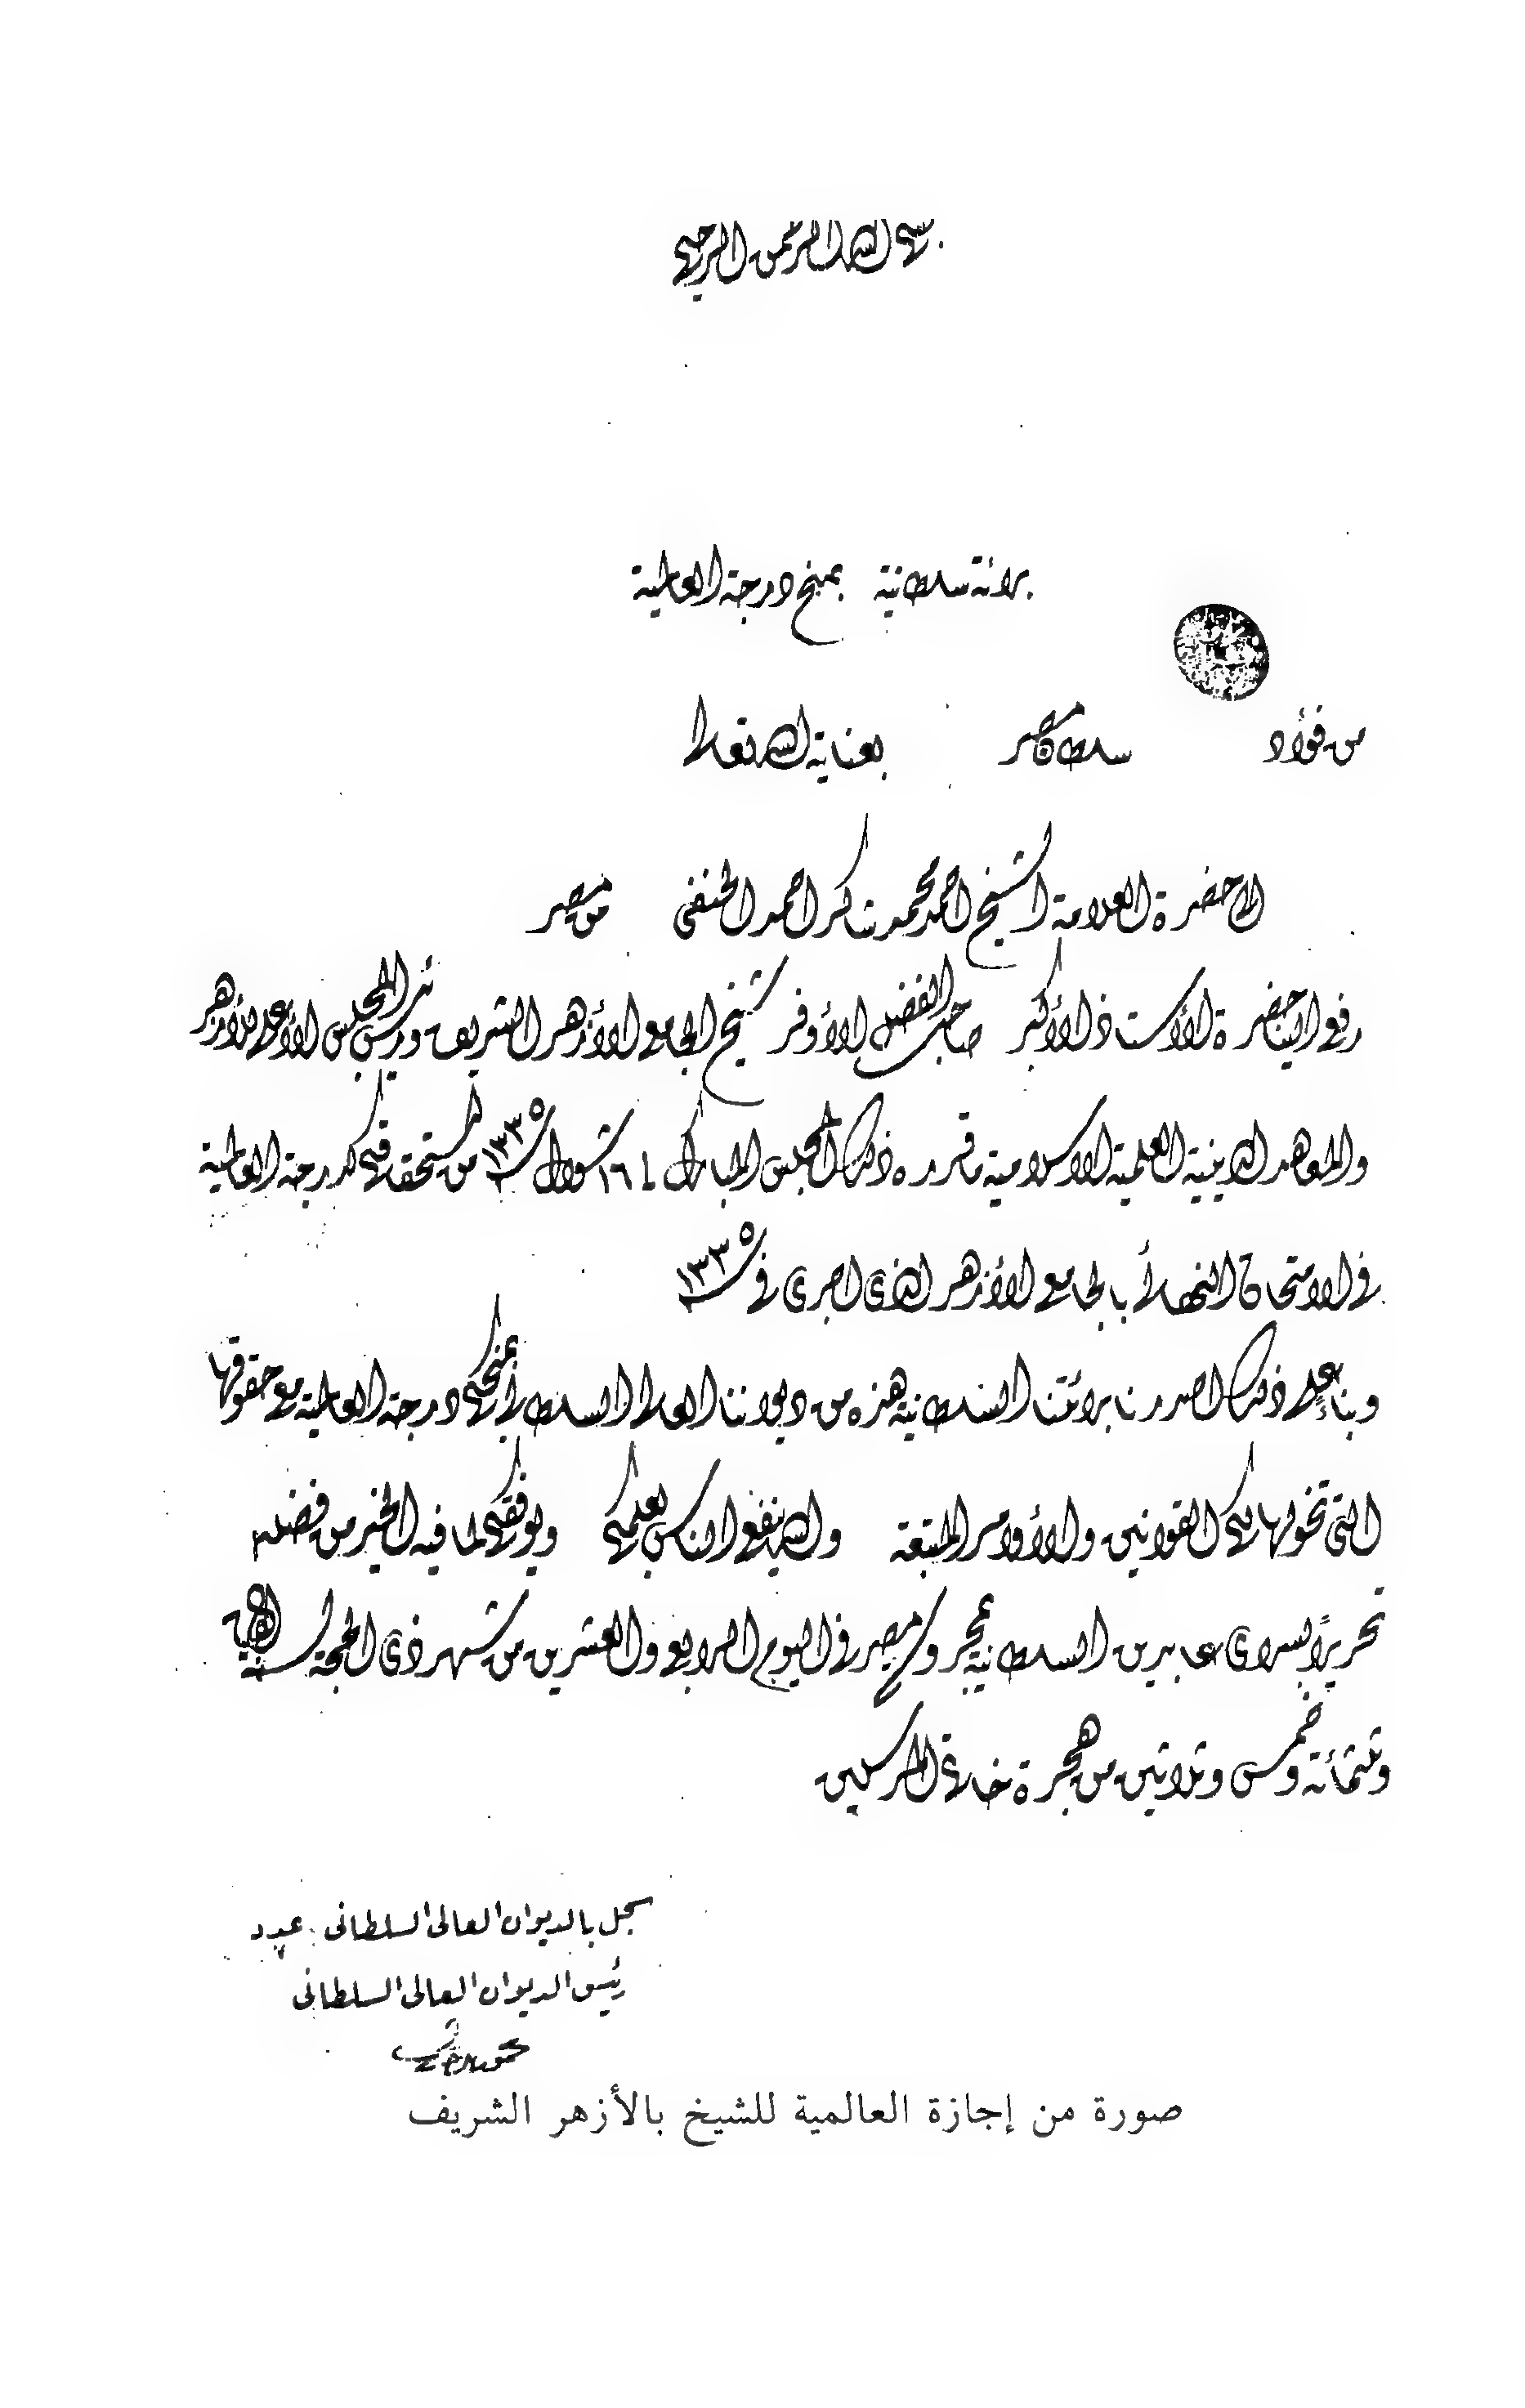 بسم الله الرحمن الرحيم
برائة سلطانية بمنح درجة العالمية
من فؤاد سلطان مصر بعناية الله تعالى
الى حضرة العلامة الشيخ احمد محمد شاكر احمد الحنفى من مصر
رفع الينا حضرة الأستاذ الأكبر صاحب الفضل الأوفر شيخ الجامع الأزهر الشريف ورئيس المجلس الأعلى للأزهر
والمعاهد الدينية العلمية الاسلامية ما قرره ذلك المجلس المبارك فى ١٦ شوال سنة ١٣٣٥ من استحقاقكم لدرجة العالمية
فى الامتحان النهائى بالجامع الأزهر الذى اجرى فى سنة ١٣٣٥
وبناءً على ذلك اصدرنا برائتنا السلطانية هذه من ديواننا العالى السلطانى بمنحكم درجة العالمية مع حقوقها
التى تخولها لكم القوانين والأوامر المتبعة والله ينفع الناس بعلمكم ويوفقكم لما فيه الخير من فضله
تحريرًا بسراى عابدين السلطانية بمحروسة مصر فى اليوم الرابع والعشرين من شهر ذى الحجة لسنة الف
وثلثمائة وخمس وثلاثين من هجرة خاتم المرسلين
سجل بالديوان العالى السلطانى عدد
رئيس الديوان العالى السلطانى
صورة من إجازة العالمية للشيخ بالأزهر الشريف